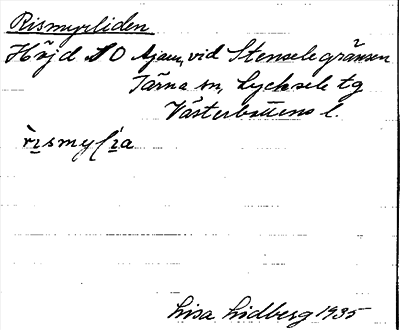 Rismyrliden
Höjd SO Ajaur, vid Stenselegränsen
Tärna sn, Lycksele tg
Västerbottens l.
Lisa Lidberg 1935